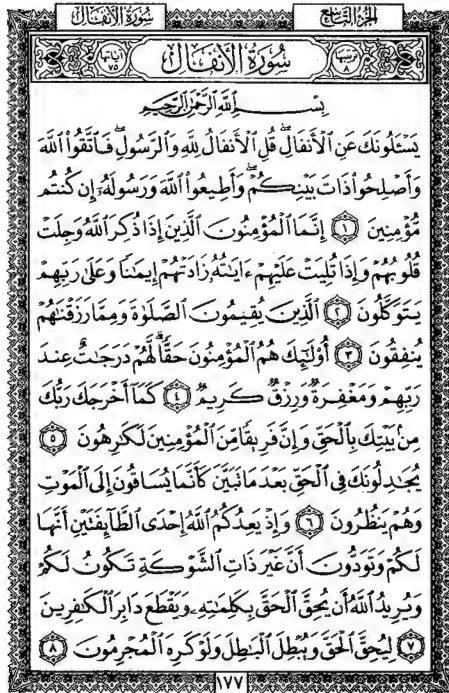 سُورَةُ الأَنفَالِ الجُزءُ التَّاسِعُ
آيَاتُهَا ٧٥ سُورَةُ الأَنفَالِ تَرتِيبُهَا ٨
بِسْمِ اللَّهِ الرَّحْمَٰنِ الرَّحِيمِ
يَسْـَٔلُونَكَ عَنِ ٱلْأَنفَالِۖ قُلِ ٱلْأَنفَالُ لِلَّهِ وَٱلرَّسُولِۖ فَٱتَّقُوا۟ ٱللَّهَ
وَأَصْلِحُوا۟ ذَاتَ بَيْنِكُمْۖ وَأَطِيعُوا۟ ٱللَّهَ وَرَسُولَهُۥٓ إِن كُنتُم
مُّؤْمِنِينَ ﴿١﴾ إِنَّمَا ٱلْمُؤْمِنُونَ ٱلَّذِينَ إِذَا ذُكِرَ ٱللَّهُ وَجِلَتْ
قُلُوبُهُمْ وَإِذَا تُلِيَتْ عَلَيْهِمْ ءَايَٰتُهُۥ زَادَتْهُمْ إِيمَٰنًا وَعَلَىٰ رَبِّهِمْ
يَتَوَكَّلُونَ ﴿٢﴾ ٱلَّذِينَ يُقِيمُونَ ٱلصَّلَوٰةَ وَمِمَّا رَزَقْنَٰهُمْ
يُنفِقُونَ ﴿٣﴾ أُو۟لَٰٓئِكَ هُمُ ٱلْمُؤْمِنُونَ حَقًّاۚ لَّهُمْ دَرَجَٰتٌ عِندَ
رَبِّهِمْ وَمَغْفِرَةٌ وَرِزْقٌ كَرِيمٌ ﴿٤﴾ كَمَآ أَخْرَجَكَ رَبُّكَ
مِنۢ بَيْتِكَ بِٱلْحَقِّ وَإِنَّ فَرِيقًا مِّنَ ٱلْمُؤْمِنِينَ لَكَٰرِهُونَ ﴿٥﴾
يُجَٰدِلُونَكَ فِى ٱلْحَقِّ بَعْدَ مَا تَبَيَّنَ كَأَنَّمَا يُسَاقُونَ إِلَى ٱلْمَوْتِ
وَهُمْ يَنظُرُونَ ﴿٦﴾ وَإِذْ يَعِدُكُمُ ٱللَّهُ إِحْدَى ٱلطَّآئِفَتَيْنِ أَنَّهَا
لَكُمْ وَتَوَدُّونَ أَنَّ غَيْرَ ذَاتِ ٱلشَّوْكَةِ تَكُونُ لَكُمْ
وَيُرِيدُ ٱللَّهُ أَن يُحِقَّ ٱلْحَقَّ بِكَلِمَٰتِهِۦ وَيَقْطَعَ دَابِرَ ٱلْكَٰفِرِينَ
﴿٧﴾ لِيُحِقَّ ٱلْحَقَّ وَيُبْطِلَ ٱلْبَٰطِلَ وَلَوْ كَرِهَ ٱلْمُجْرِمُونَ ﴿٨﴾
١٧٧